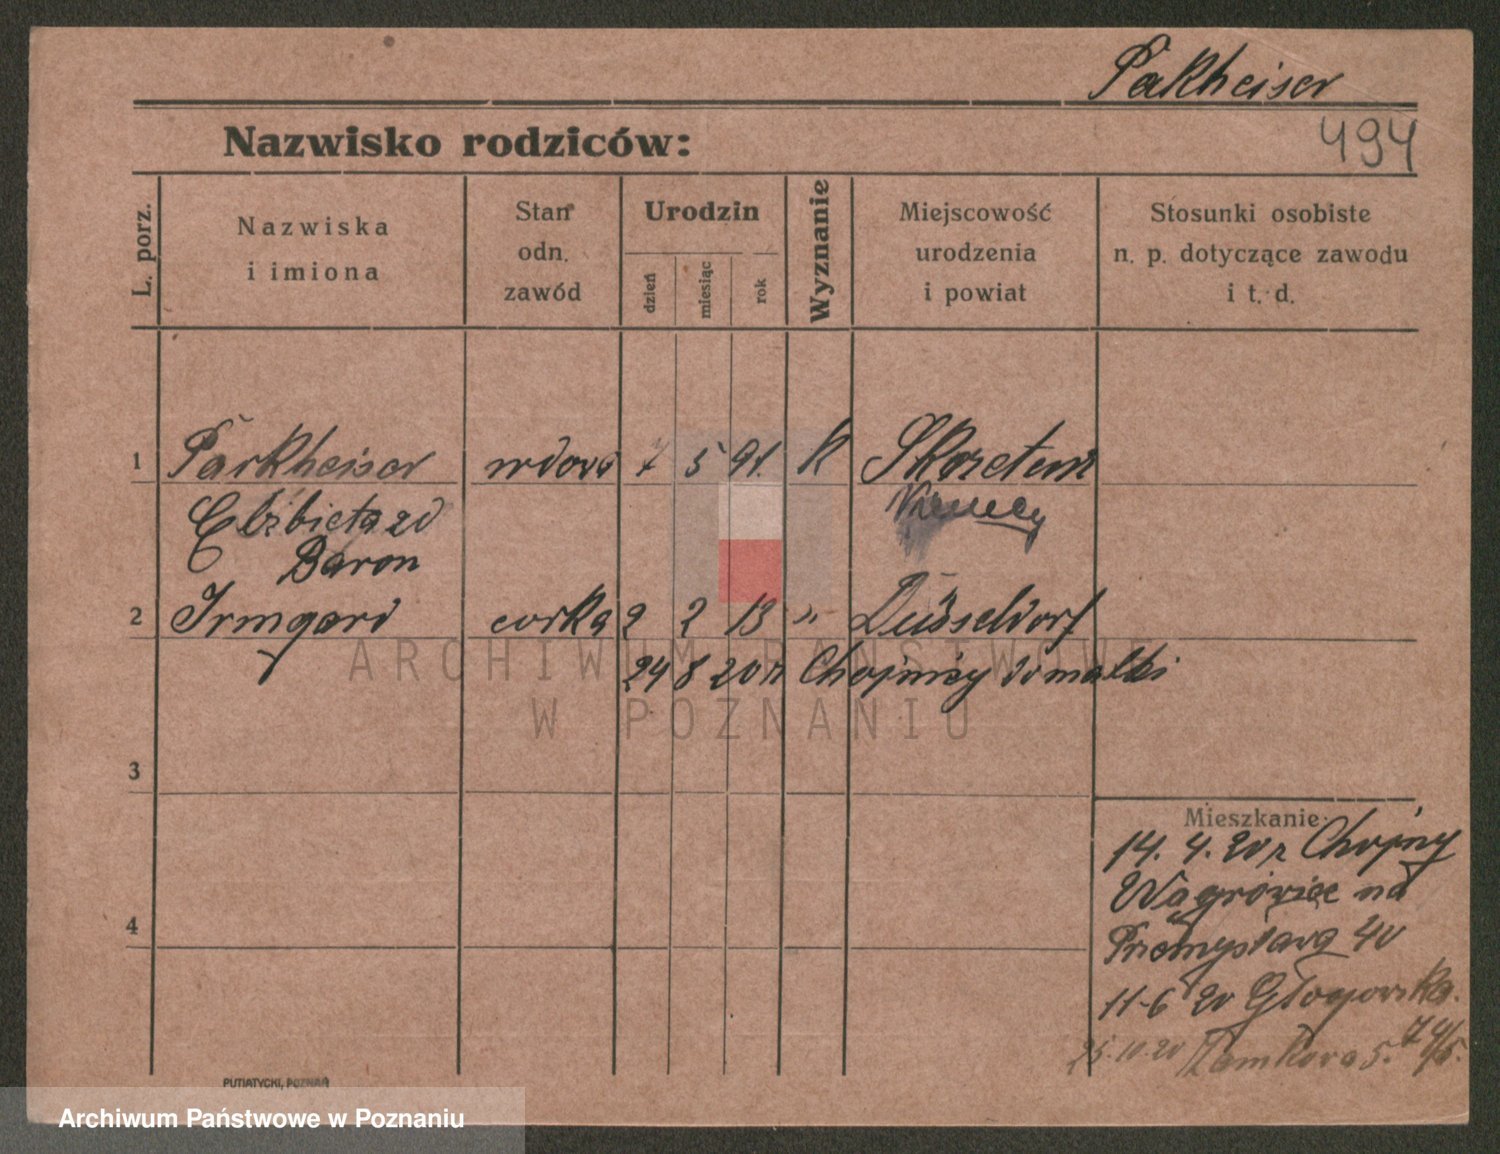 Pakheiser
494
Nazwisko rodziców:
L. porz.
Nazwiska
i imiona
Stan
odn.
zawód
Urodzin
dzień
miesiąc
rok
Wyznanie
Miejscowość
urodzenia
i powiat
Stosunki osobiste
n. p. dotyczące zawodu
i t. d.
1 Parkheiser wdowa 7 5 91. K
Niemcy
Elżbieta zd
Baron
2 Irmgard corka 2 2 13 " Düsseldorf
24 8 20 r Chojnicy do matki
3
4
Mieszkanie
14. 4. 20 r Chojny
Wągrowiec na
Przemysława 40
11-6 20 Głogowska
25.10.20 Zamkowa 5.
PUTIATYCKI, POZNAŃ
ARCHIWUM PAŃSTWOWE
W POZNANIU
Archiwum Państwowe w Poznaniu